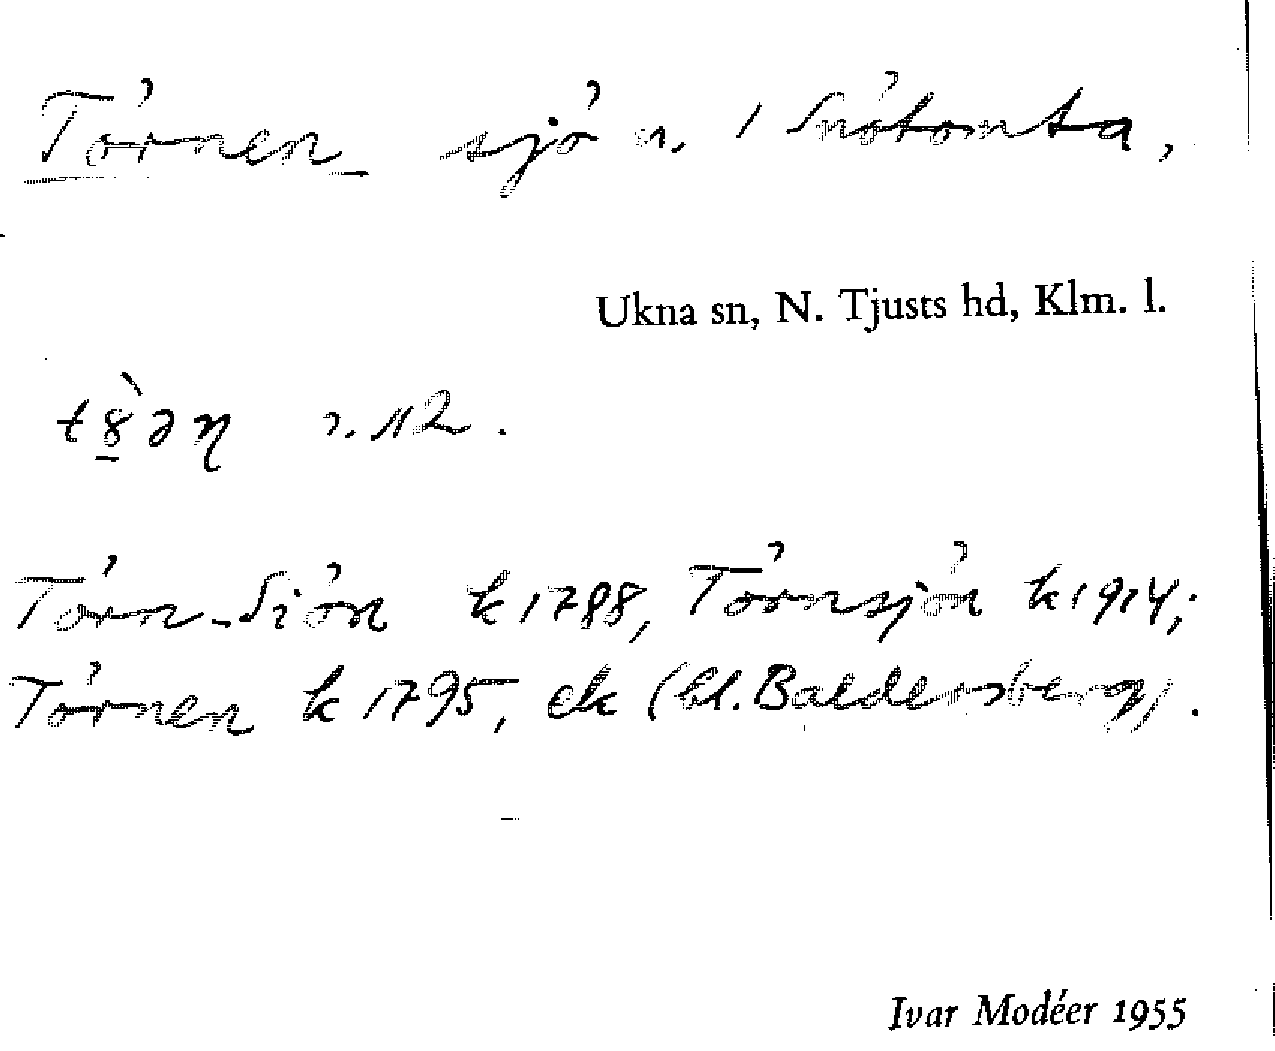 Törnen sjö n. / Snötomta,
Ukna sn, N. Tjusts hd, Klm. l.
Törn-Siön k 1788, Törnsjön k 1914;
Törnen k 1795, ek (bl. Baldersberg).
Ivar Modéer 1955